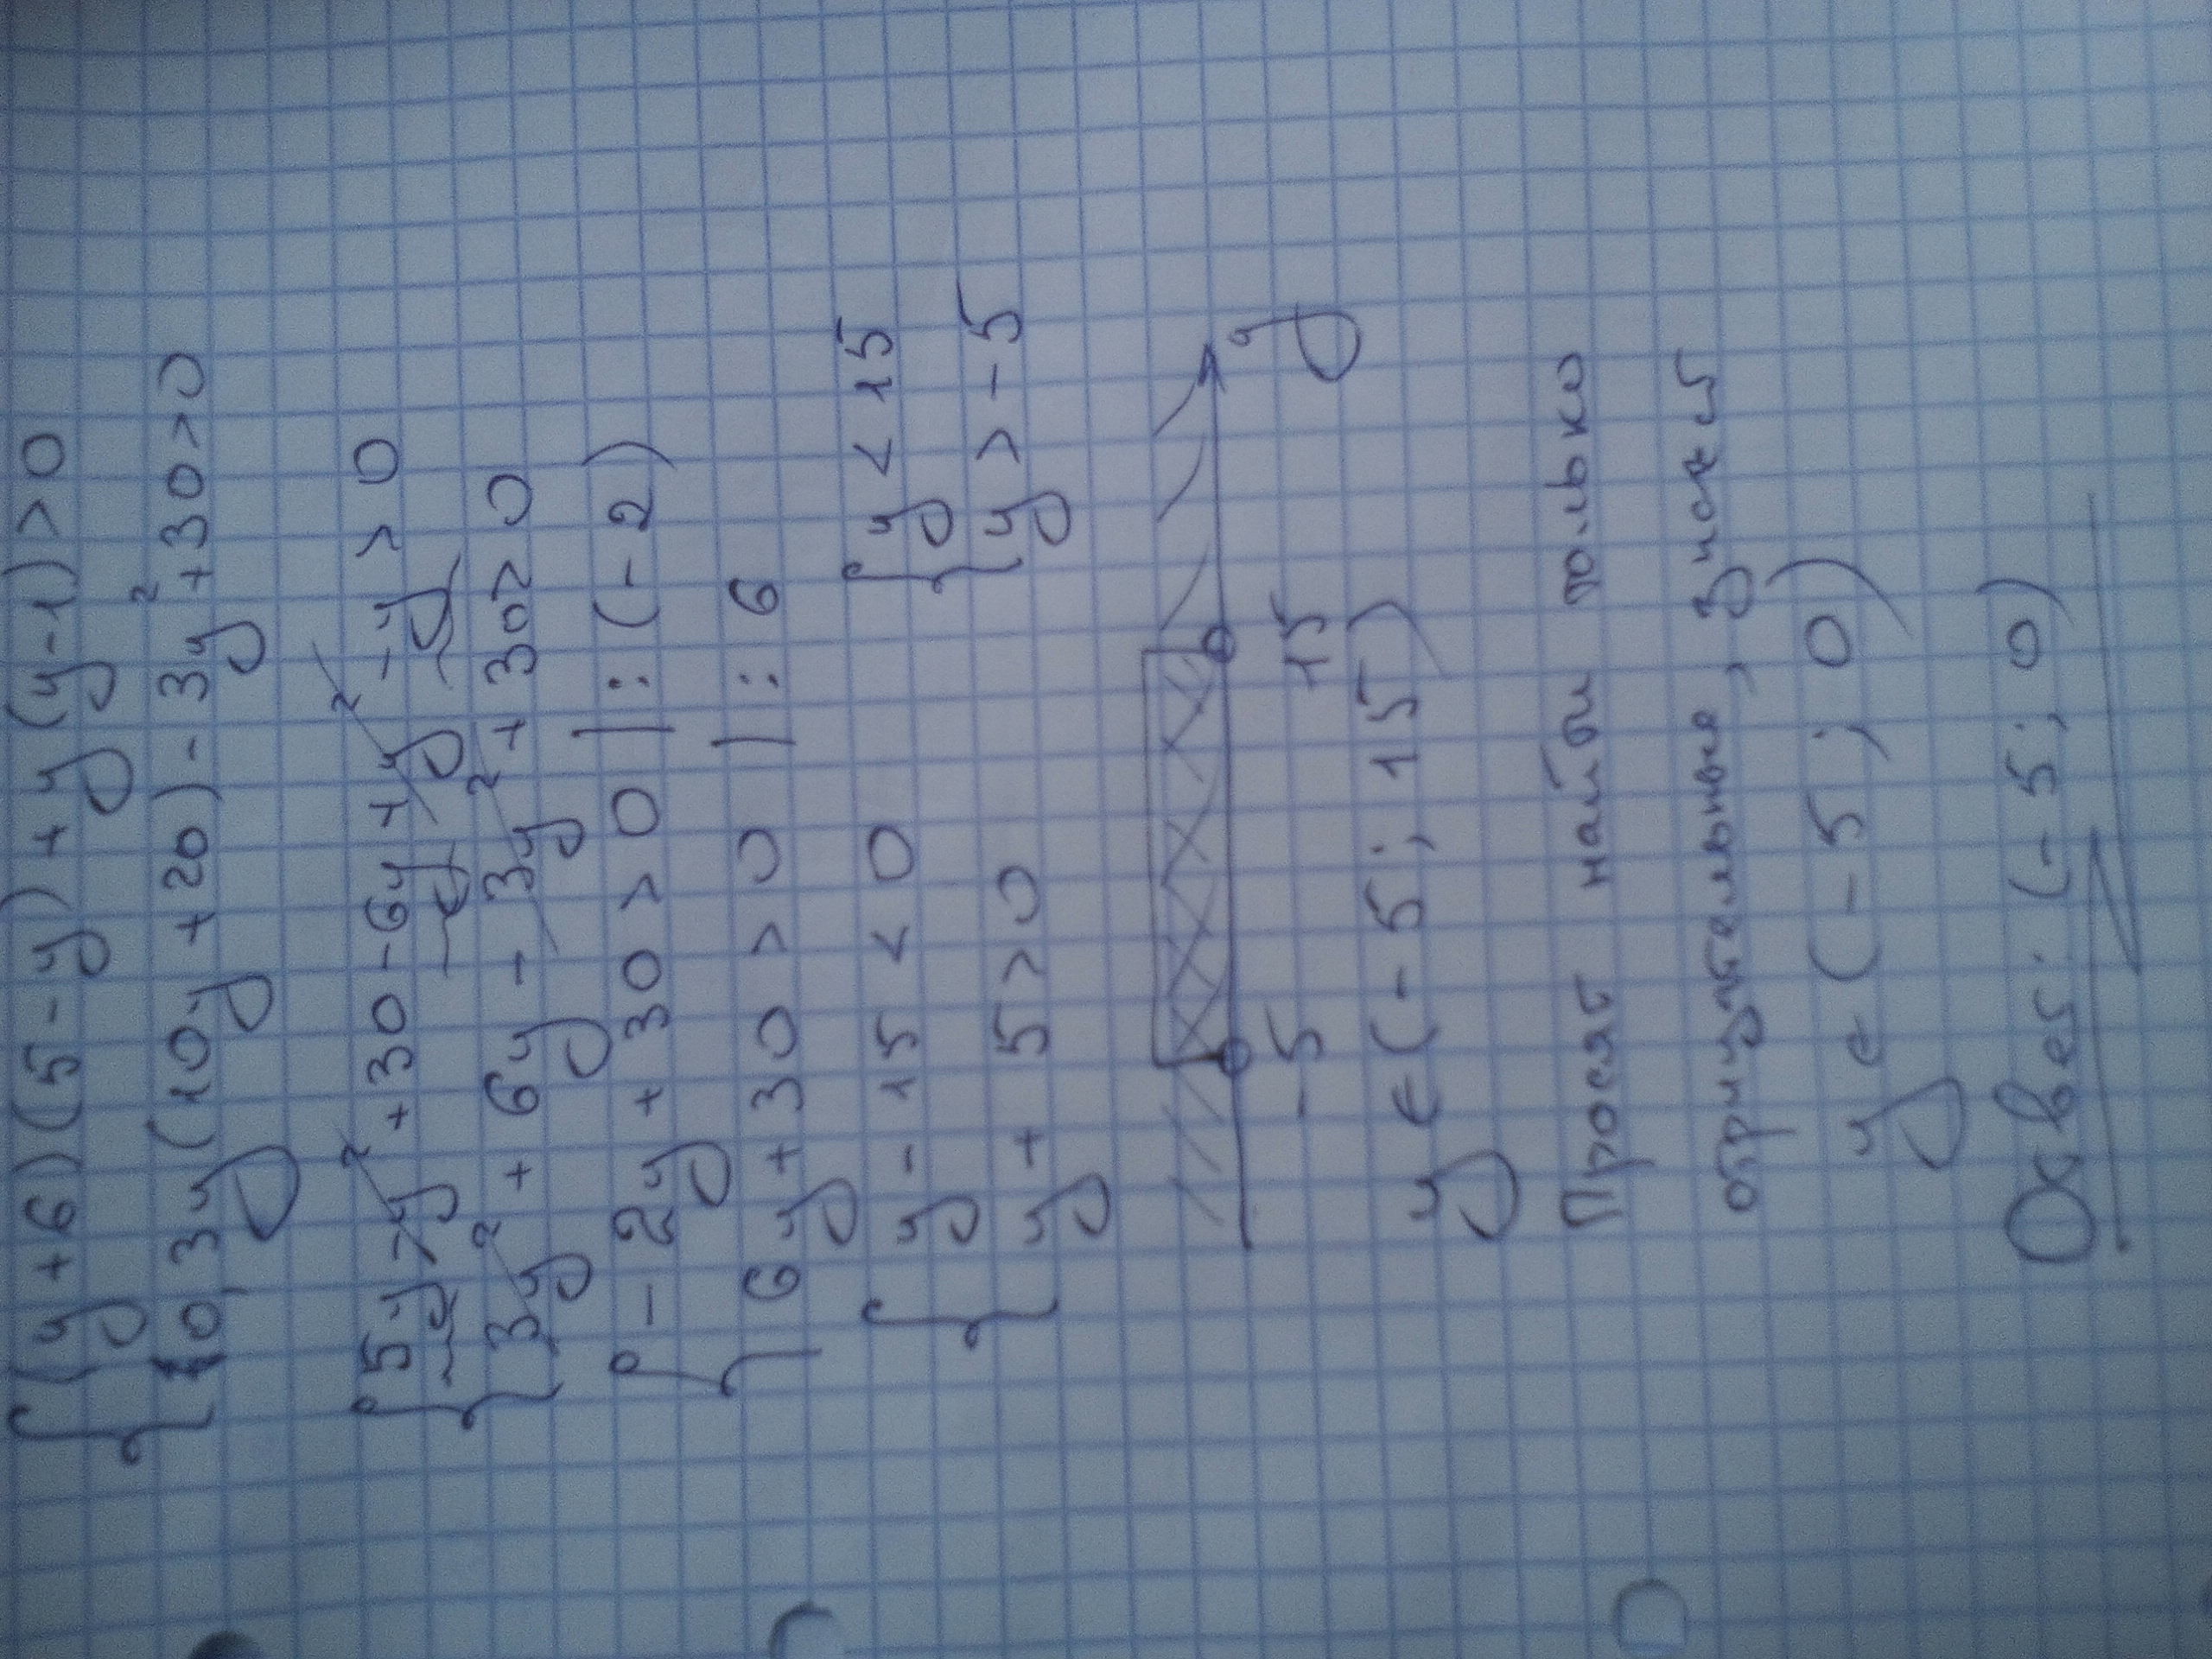 {(y+6)(5-y)+y(y-1)>0
{0,3y(10y+20)-3y²+30>0
{5y-y²+30-6y+y²-y>0
{3y²+6y-3y²+30>0
{-2y+30>0 |:(-2)
{6y+30>0 |:6
{y-15<0
{y+5>0
{y<15
{y>-5
-5 15 y
y∈(-5;15)
Просят найти только
отрицательные, значит
y∈(-5;0)
Ответ: (-5;0)